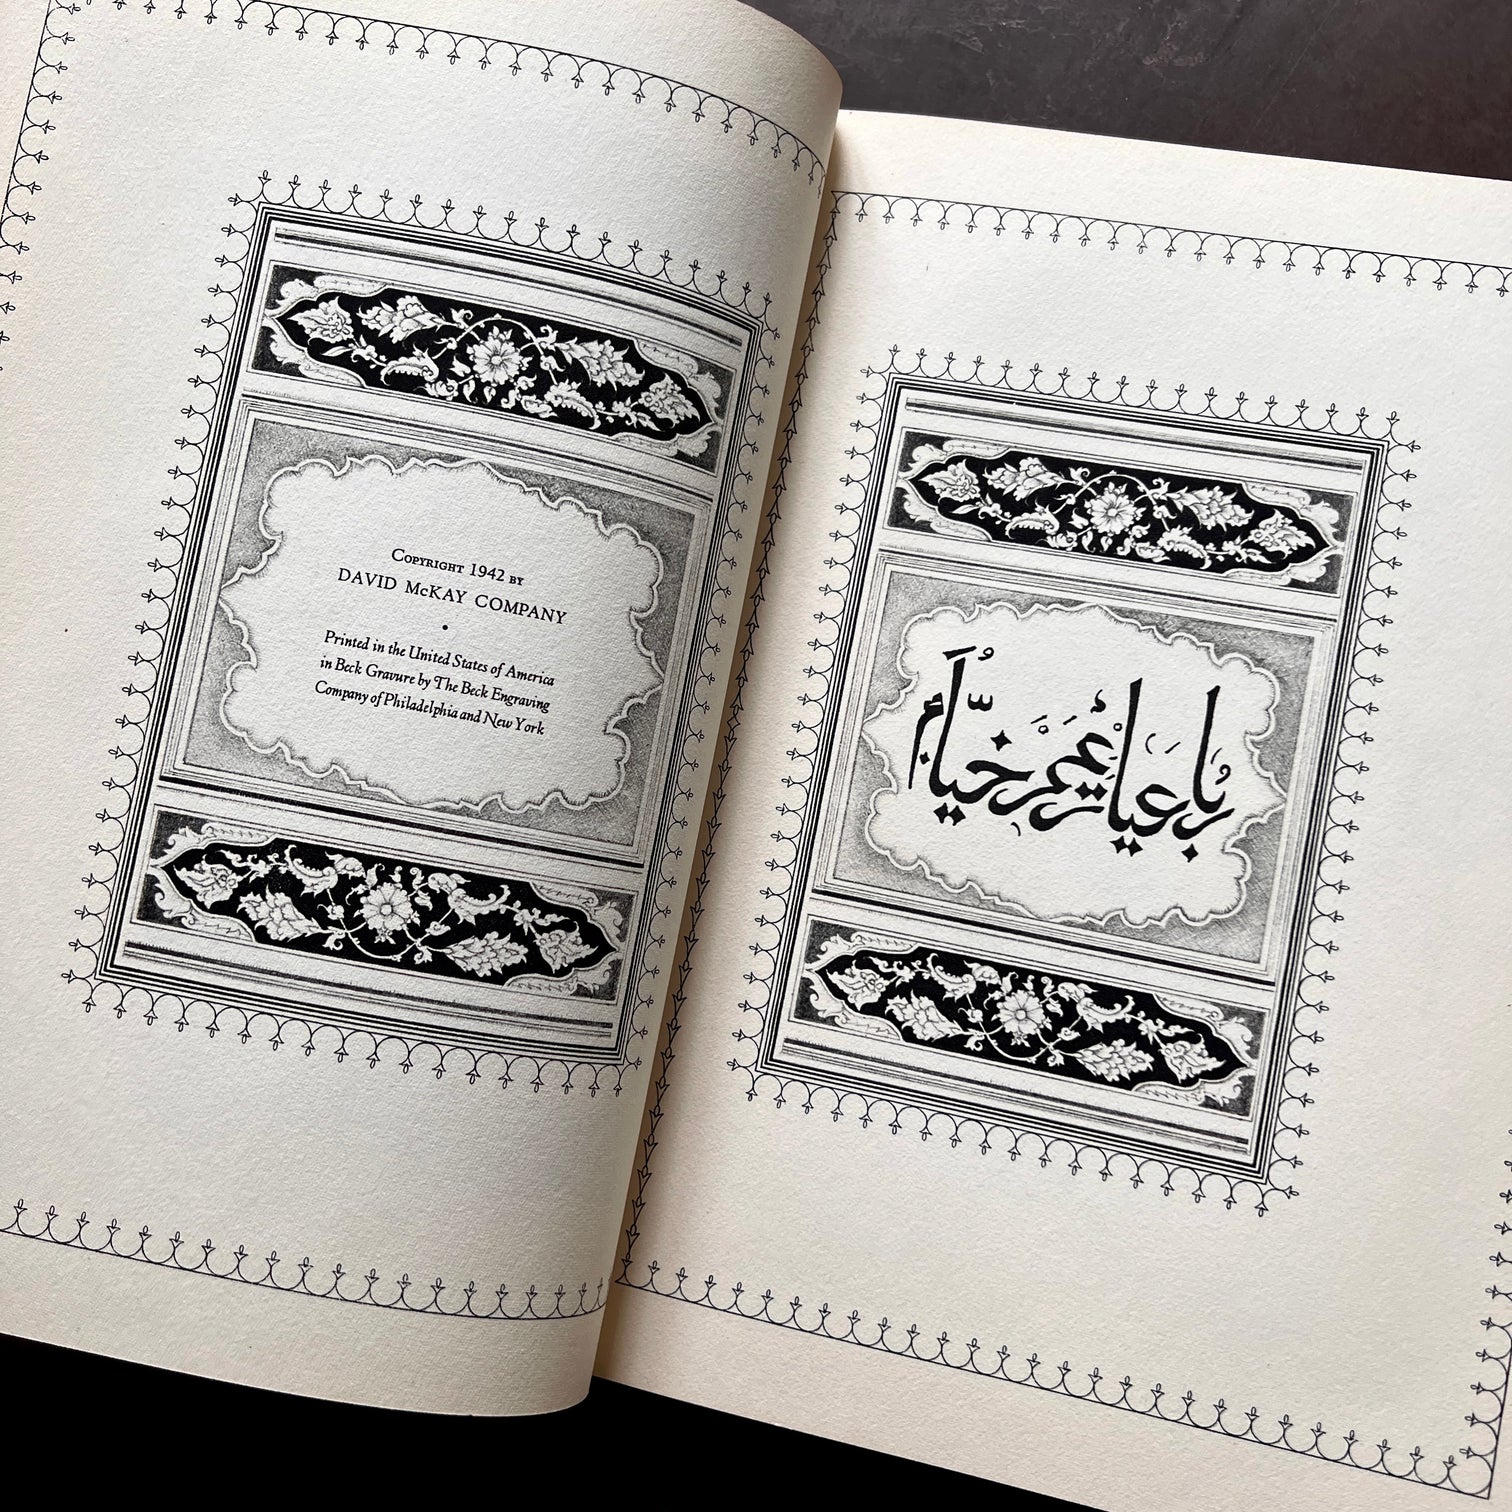 COPYRIGHT 1942 BY
DAVID McKAY COMPANY
•
Printed in the United States of America
in Beck Gravure by The Beck Engraving
Company of Philadelphia and New York
رباعيات عمر خيّام